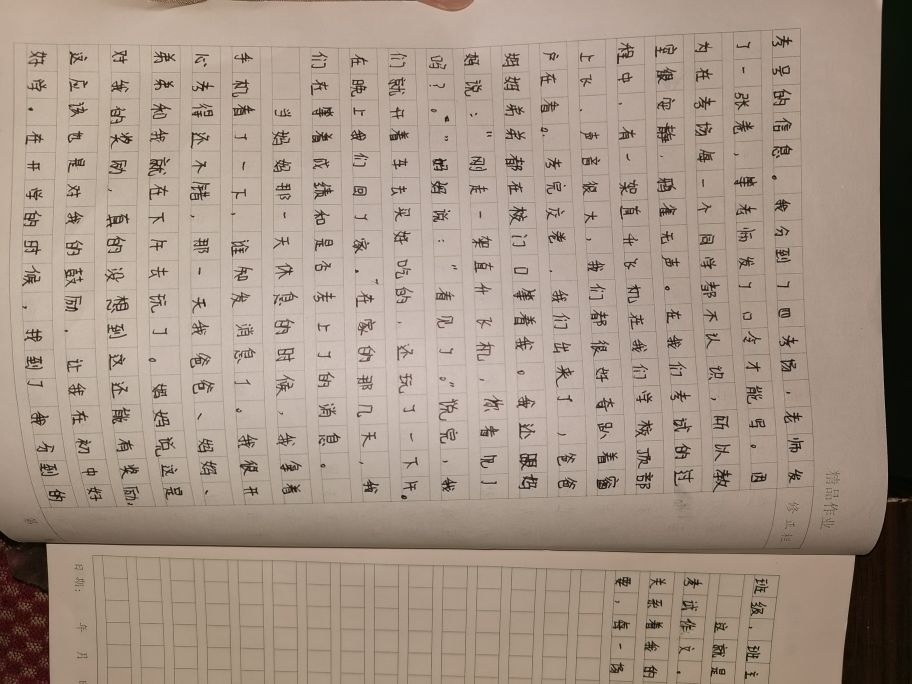 精品作业
修正栏
考号的信息。我分到了四考场，老师发
了一张卷，等老师发了口令才能写。因
为在考场每一个同学都不认识，所以教
室很安静，鸦雀无声。在我们考试的过
程中，有一架直升飞机在我们学校顶部
上飞，声音很大，我们都很好奇趴着窗
户在看。考完交卷，我们出来了，爸爸
妈妈弟弟都在校门口等着我。我还跟妈
妈说：“刚走一架直什飞机，你看见了
吗？。”妈妈说：“看见了。”说完，我
们就开着车去买好吃的，还玩了一下午。
在晚上我们回了家。”在家的那几天，我
们在等着成绩和是否考上了的消息。
当妈妈那一天休息的时候，我拿着
手机看了一下，谁知发消息了。我很开
心考得还不错，那一天我爸爸、妈妈、
弟弟和我就在下午去玩了。妈妈说这是
对我的奖励，真的没想到这还能有奖励，
这应该也是对我的鼓励，让我在初中好
好学。在开学的的时候，找到了我分到的
第
班级，班主
这就是
考试作文，
关系着我的
要，每一场
日期： 年 月 日